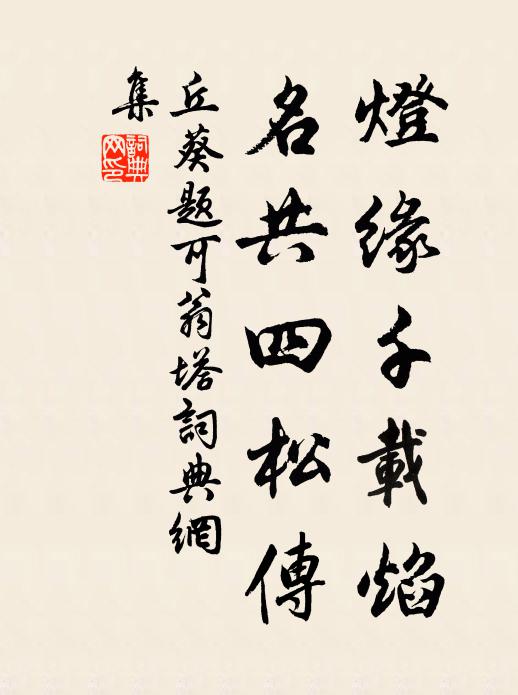 燈緣千載焰
名共四松傳
丘葵題可翁塔詞典網
集
詞典網印